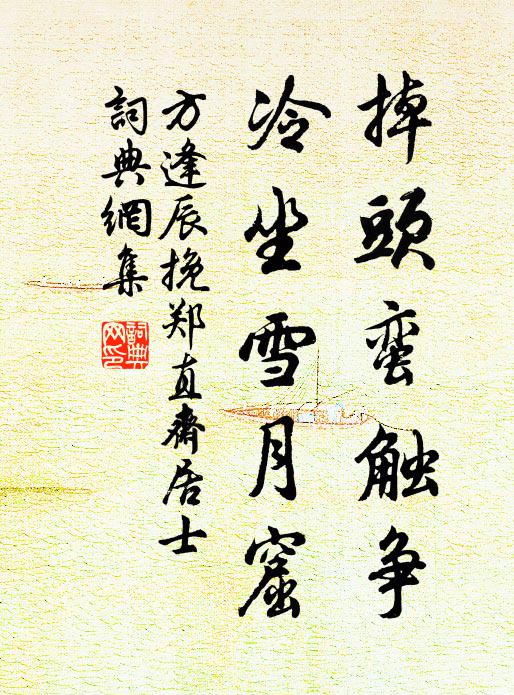 掉頭蛮触争
冷坐雪月窟
方逢辰挽郑直齋居士
詞典網集
詞典網印